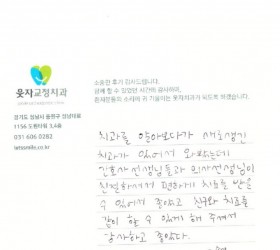 웃자교정치과
소중한 후기 감사드립니다.
함께 할 수 있었던 시간에 감사하며,
환자분들의 소리에 귀 기울이는 웃자치과가 되도록 하겠습니다.
경기도 성남시 중원구 성남대로
1156 도원타워 3,4층
031 606 0282
letssmile.co.kr
치과를 알아보다가 새로생긴
치과가 있어서 와봤는데
간호사 선생님들과 의사선생님이
친절하셔서 편하게 치료를 받을
수 있어서 좋았고 친구와 치료를
같이 할 수 있게 해 주셔서
감사하고 좋았다.